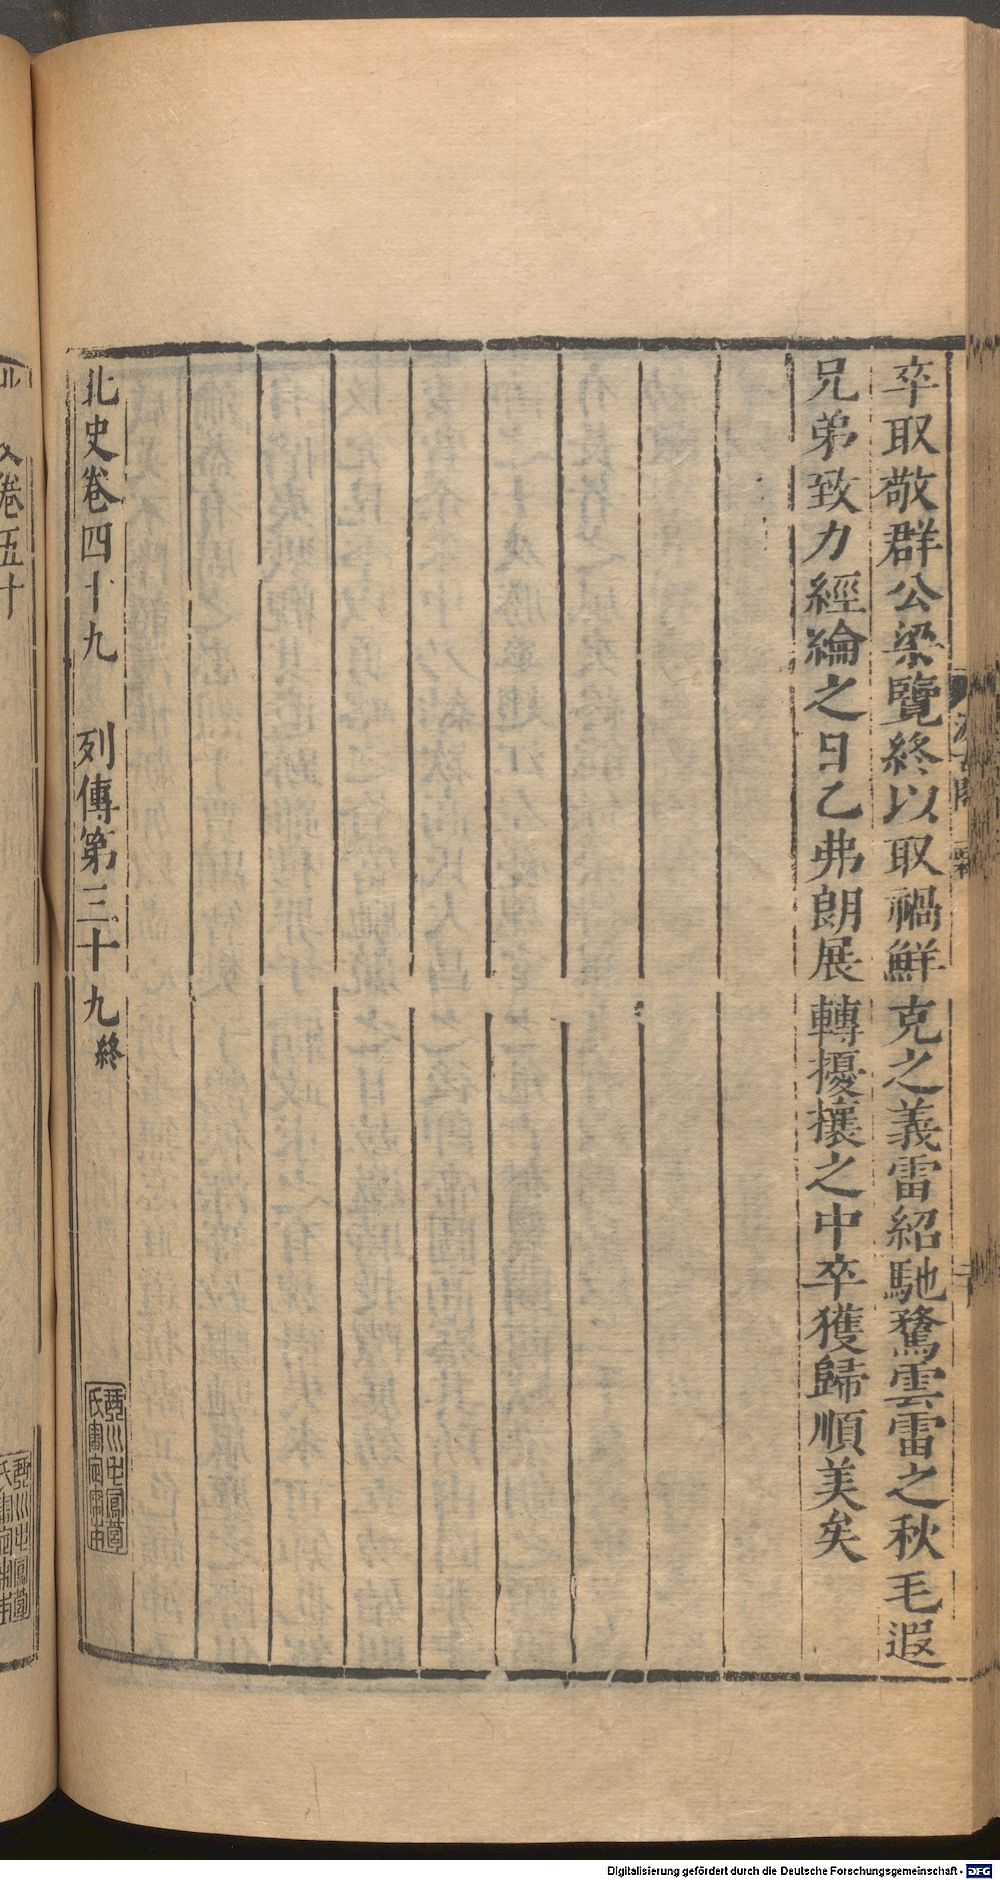 卒取敬群公梁覽終以取禍鮮克之義雷紹馳騖雲雷之秋毛遐
兄弟致力經綸之日乙弗朗展轉擾攘之中卒獲歸順美矣
北史卷四十九 列傳第三十九終
卷五十
Digitalisierung gefördert durch die Deutsche Forschungsgemeinschaft - DFG